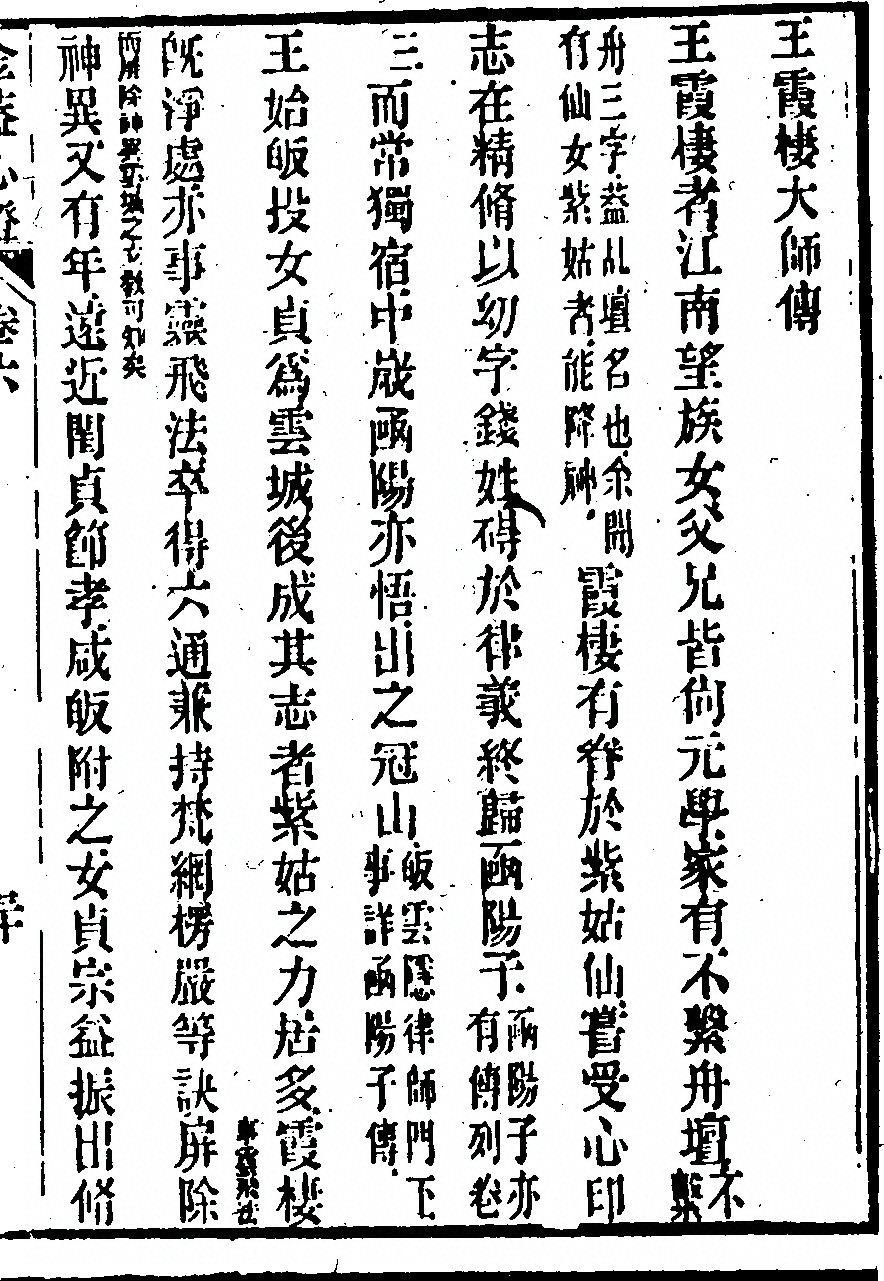 王霞棲大師傳
王霞棲者江南望族女父兄皆尙元學家有不繫舟壇不繫
舟三字葢乩壇名也余聞
有仙女紫姑者能降眞霞棲有眷於紫姑仙嘗受心印
志在精脩以幼字錢姓碍於律義終歸函陽子函陽子亦
有傳列卷
三而常獨宿中嵗函陽亦悟出之冠山皈雲隱律師門下
事詳函陽子傳
王始皈投女貞爲雲城後成其志者紫姑之力居多霞棲
旣淨處亦事靈飛法卒得六通兼持梵網楞嚴等訣屏除
神異又有年遠近閨貞節孝咸皈附之女貞宗益振出脩
金葢心燈
卷六